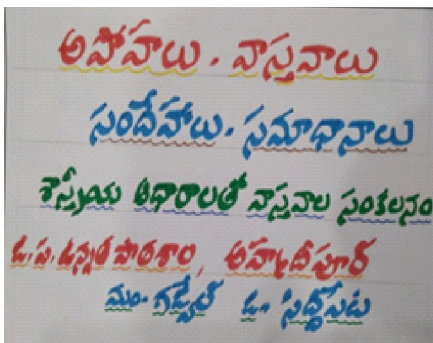 అపోహలు. వాస్తవాలు
సందేహాలు. సమాధానాలు
శాస్త్రీయ ఆధారాలతో వాస్తవాల సంకలనం
జి.ప. ఉన్నత పాఠశాల, అహ్మదీపూర్
మం- గజ్వేల్ జి- సిద్దిపేట